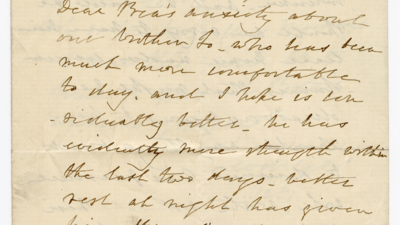 Dear Bro's anxiety about
our brother Jo - who has been
much more comfortable
to day. and I hope is con
-siderably better - he has
evidently more strength within
the last two days - better
rest at night has given